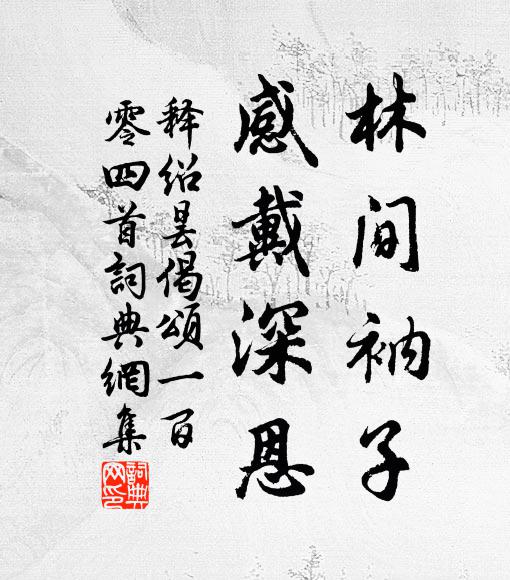 林间衲子
感戴深恩
释绍昙偈颂一百
零四首詞典網集
詞典
网印